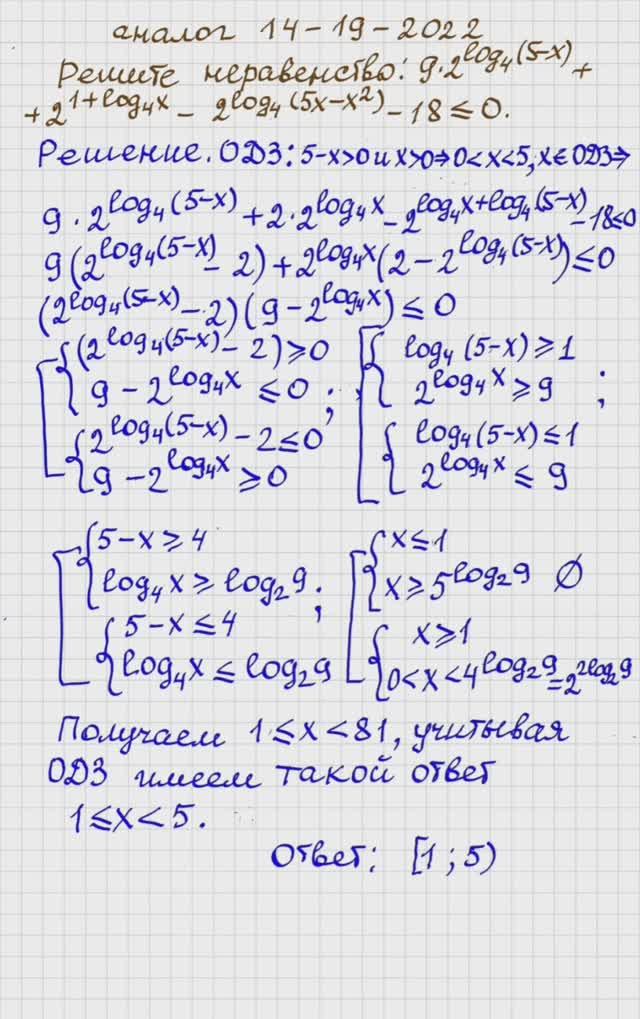 аналог 14-19-2022
Решите неравенство: 9·2^log₄(5-x) +
+ 2^1+log₄x - 2^log₄(5x-x²) - 18 ≤ 0.
Решение. ОДЗ: 5-x>0 и x>0 ⇒ 0<x<5, x∈ОДЗ ⇒
9·2^log₄(5-x) + 2·2^log₄x - 2^log₄x+log₄(5-x) - 18≤0
9(2^log₄(5-x) - 2) + 2^log₄x(2 - 2^log₄(5-x)) ≤ 0
(2^log₄(5-x) - 2)(9 - 2^log₄x) ≤ 0
[ { (2^log₄(5-x) - 2) ≥ 0
9 - 2^log₄x ≤ 0 ;
{ 2^log₄(5-x) - 2 ≤ 0
9 - 2^log₄x ≥ 0
[ { log₄(5-x) ≥ 1
2^log₄x ≥ 9 ;
{ log₄(5-x) ≤ 1
2^log₄x ≤ 9
[ { 5-x ≥ 4
log₄x ≥ log₂9 ;
{ 5-x ≤ 4
log₄x ≤ log₂9
[ { x ≤ 1
x ≥ 5^log₂9 ∅
{ x ≥ 1
0<x<4^log₂9 = 2^2log₂9
Получаем 1 ≤ x < 81, учитывая
ОДЗ имеем такой ответ
1 ≤ x < 5.
Ответ: [1 ; 5)